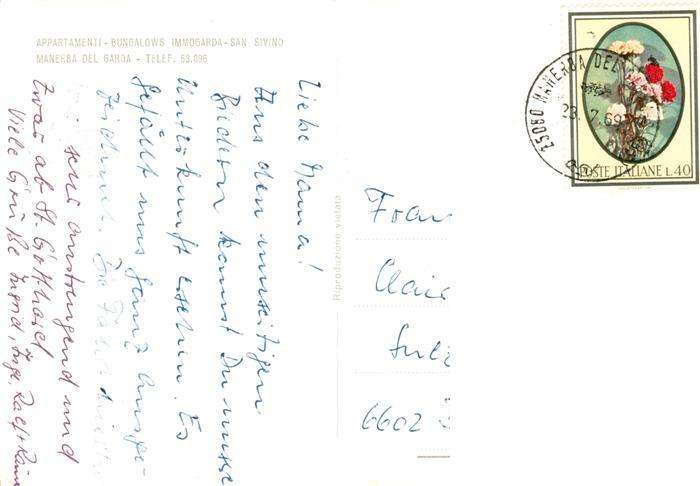 APPARTAMENTI - BUNGALOWS IMMOGARDA - SAN SIVINO
MANERBA DEL GARDA - TELEF. 63.096
Liebe Mama!
Aus den umseitigen
Bildern kannst Du unsere
Unterkunft ersehen. Es
gefällt uns ganz ausge-
zeichnet. Die Fahrt
sehr anstrengend und
zwar ab St. Gotthard
Viele Grüße Ingrid, Inge, Ralf +
Riproduzione vietata
Frau
6602
25080 MANERBA DEL
23.7.69
POSTE ITALIANE L.40